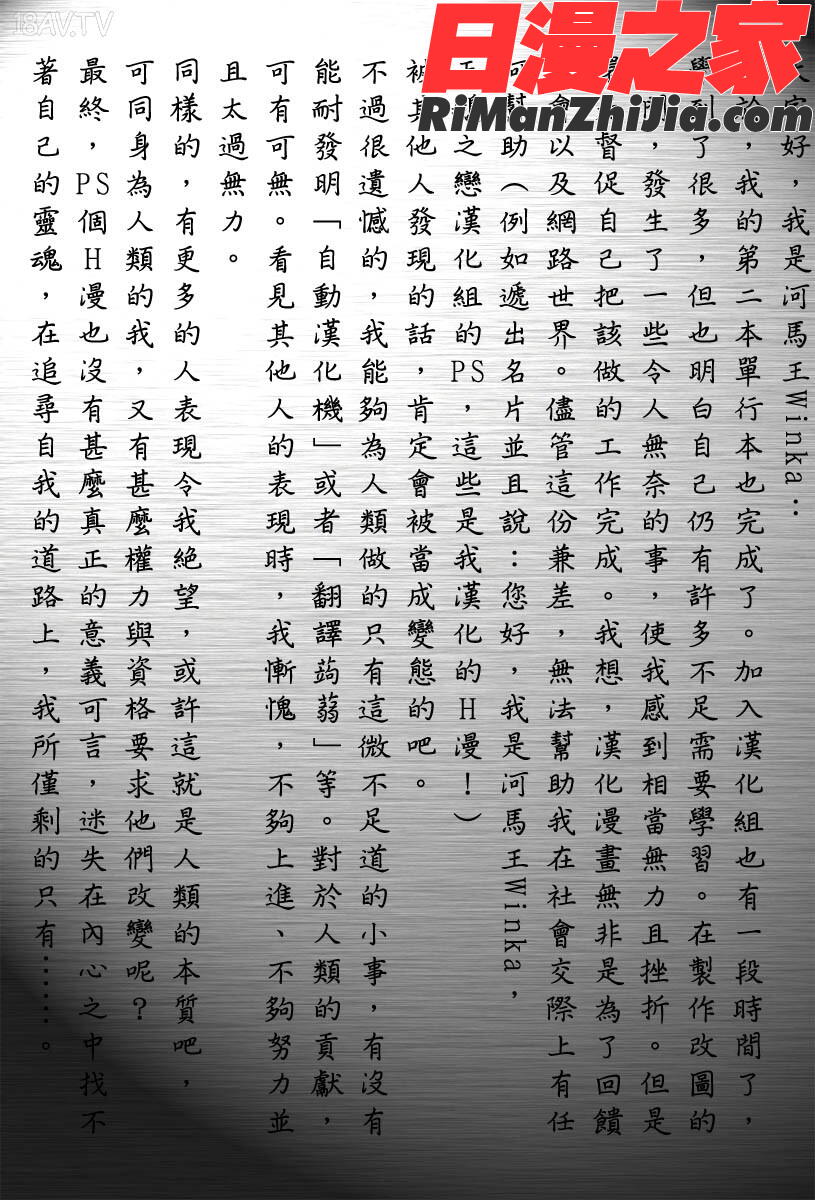 18AV.TV
日漫之家
RiManZhiJia.com
好，我是河馬王Winka：
，我的第二本單行本也完成了。加入漢化組也有一段時間了，
到了很多，但也明白自己仍有許多不足需要學習。在製作改圖的
，發生了一些令人無奈的事，使我感到相當無力且挫折。但是
督促自己把該做的工作完成。我想，漢化漫畫無非是為了回饋
會以及網路世界。儘管這份兼差，無法幫助我在社會交際上有任
何幫助（例如遞出名片並且說：您好，我是河馬王Winka，
之戀漢化組的PS，這些是我漢化的H漫！）
被其他人發現的話，肯定會被當成變態的吧。
不過很遺憾的，我能夠為人類做的只有這微不足道的小事，有沒有
能耐發明「自動漢化機」或者「翻譯蒟蒻」等。對於人類的貢獻，
可有可無。看見其他人的表現時，我慚愧，不夠上進、不夠努力並
且太過無力。
同樣的，有更多的人表現令我絕望，或許這就是人類的本質吧，
可同身為人類的我，又有甚麼權力與資格要求他們改變呢？
最終，PS個H漫也沒有甚麼真正的意義可言，迷失在內心之中找不
著自己的靈魂，在追尋自我的道路上，我所僅剩的只有……。